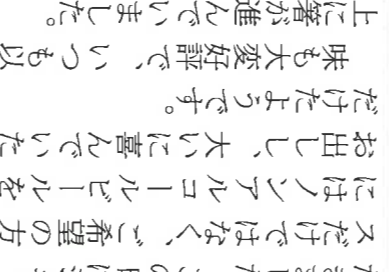 スだけではなく、ご希望の方
にはノンアルコールビールを
お出しし、大いに喜んでいた
だけたようです。
味も大変好評で、いつも以
上に箸が進んでいました。